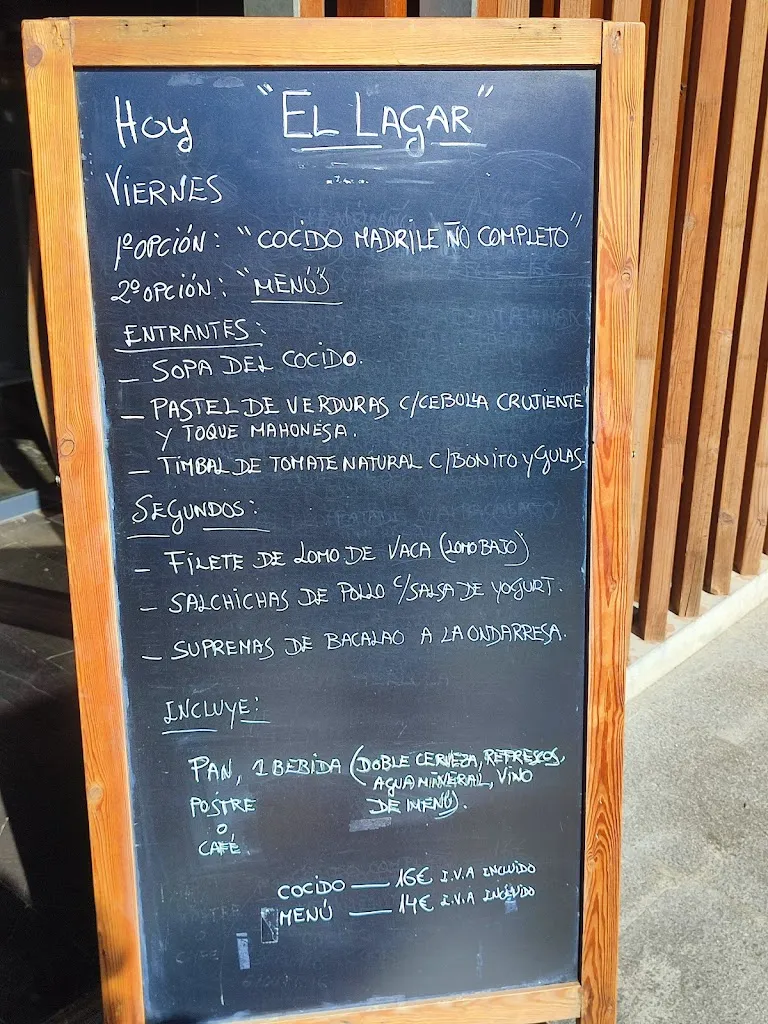 Hoy "EL LAGAR"
VIERNES
1º OPCIÓN: "COCIDO MADRILEÑO COMPLETO"
2º OPCIÓN: "MENÚ"
ENTRANTES:
- SOPA DEL COCIDO.
- PASTEL DE VERDURAS C/CEBOLLA CRUJIENTE
Y TOQUE MAHONESA.
- TIMBAL DE TOMATE NATURAL C/BONITO y GULAS
SEGUNDOS:
- FILETE DE LOMO DE VACA (LOMO BAJO)
- SALCHICHAS DE POLLO C/SALSA DE YOGURT.
- SUPREMAS DE BACALAO A LA ONDARRESA.
INCLUYE:
PAN, 1 BEBIDA (DOBLE CERVEZA, REFRESCOS,
AGUA MINERAL, VINO
POSTRE DE MENÚ).
O
CAFÉ
COCIDO — 16€ I.V.A INCLUIDO
MENÚ — 14€ I.V.A INCLUIDO